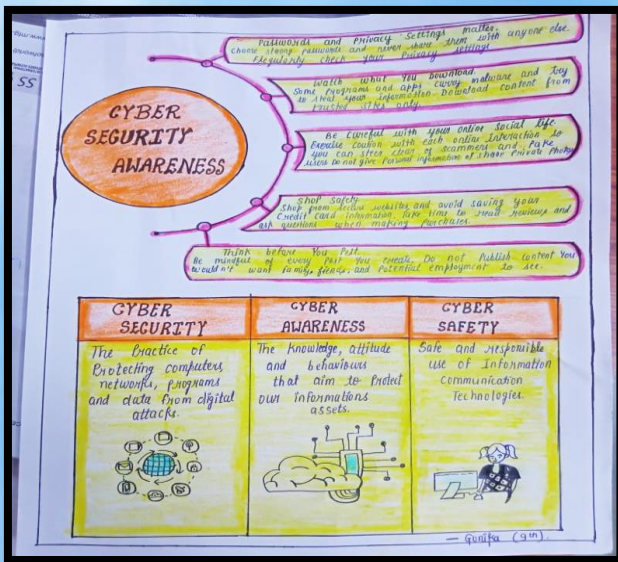 CYBER
SECURITY
AWARENESS
Passwords and Privacy Settings matter.
Choose strong passwords and never share them with anyone else.
Regularly check your Privacy settings
Watch what You Download.
Some Programs and apps carry malware and try
to steal your information. Download content from
trusted sites only.
Be Careful with your online Social life.
Exercise Caution with each online Interaction so
you can steer clear of scammers and Fake
users Do not give Personal information or share Private Photos
Shop Safely
Shop from secure websites and avoid saving your
Credit Card information. Take time to read reviews and
ask questions when making Purchases.
Think before You Post.
Be mindful of every Post You create. Do not Publish content You
wouldn't want family, friends, and Potential employment to see.
CYBER
SECURITY
The Practice of
Protecting computers,
networks, programs
and data from digital
attacks.
CYBER
AWARENESS
The Knowledge, attitude
and behaviours
that aim to Protect
our informations
assets.
CYBER
SAFETY
Safe and responsible
use of Information
Communication
Technologies.
— Gunika (9th).
55